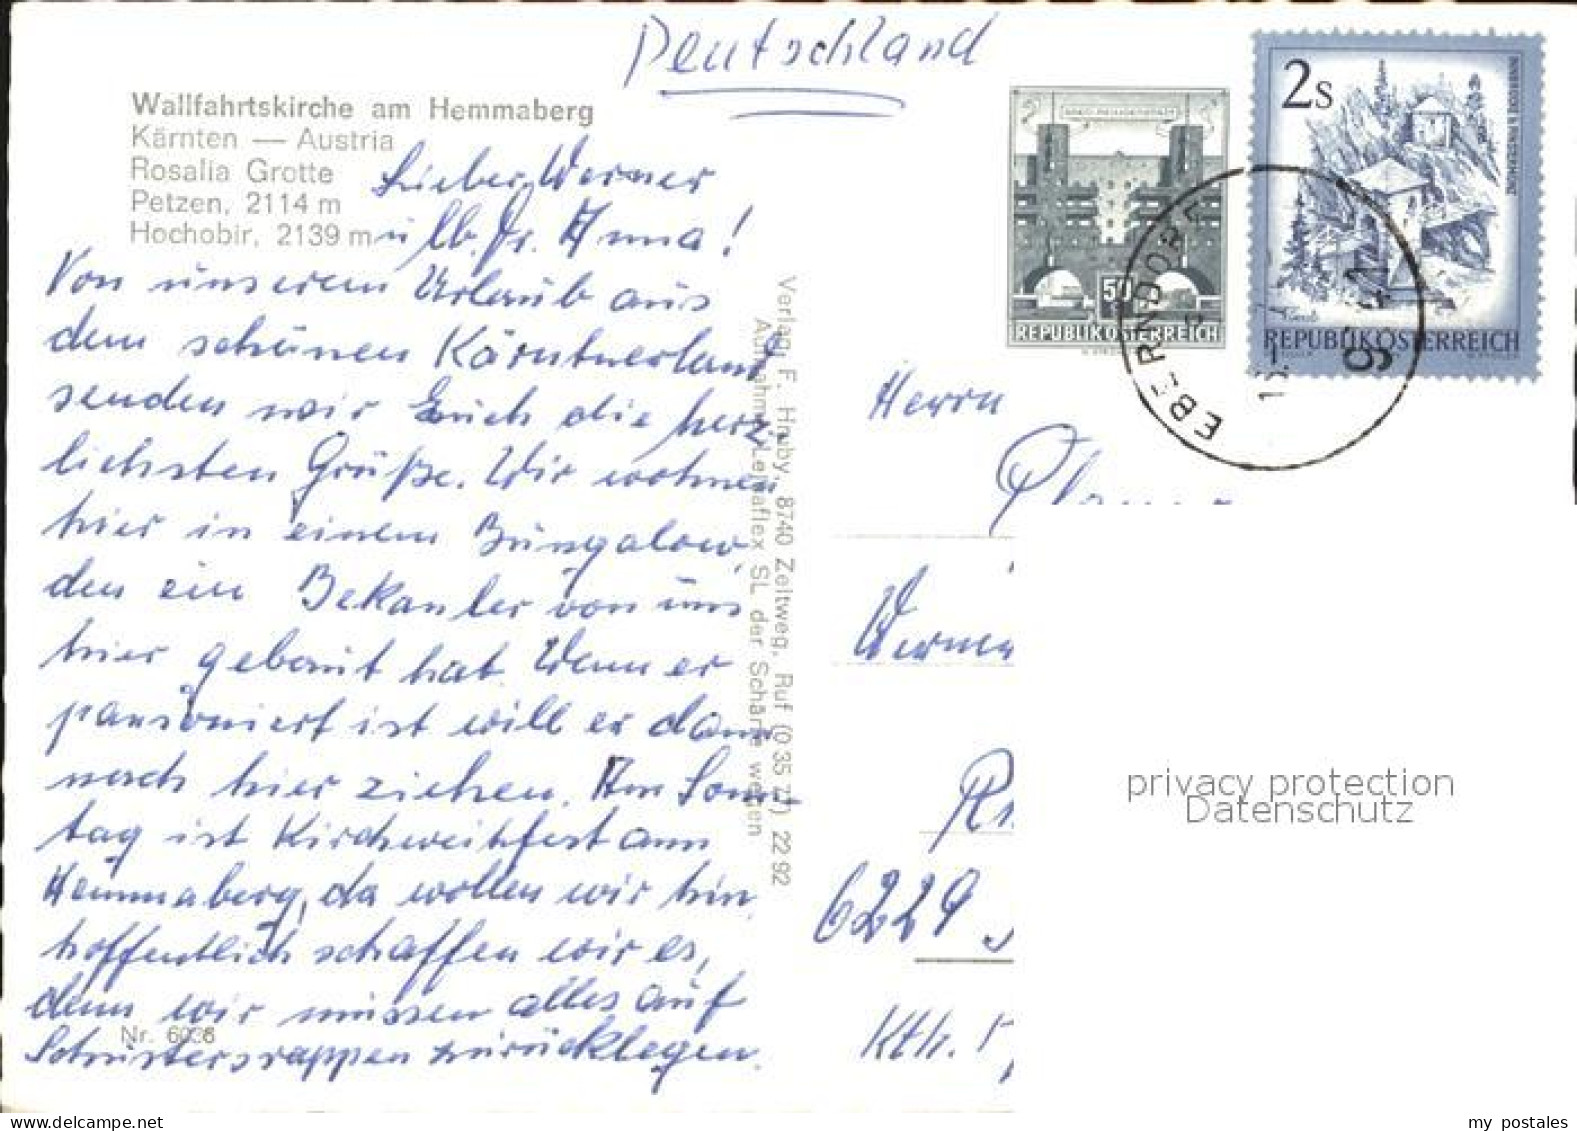 Deutschland
Wallfahrtskirche am Hemmaberg
Kärnten — Austria
Rosalia Grotte
Petzen, 2114 m
Hochobir, 2139 m
Lieber Werner
u lb. Fr. Anna!
Von unserem Urlaub aus
dem schönen Kärntnerland
senden wir Euch die herz-
lichsten Grüße. Wir wohnen
hier in einem Bungalow,
den ein Bekanter von uns
hier gebaut hat. Wenn er
pansioniert ist will er dann
nach hier ziehen. Am Sonn-
tag ist Kirchweihfest am
Hemmaberg, da wollen wir hin,
hoffentlich schaffen wir es,
denn wir müssen alles auf
Schustersrappen zurücklegen.
Nr. 6036
Verlag F. Hruby, 8740 Zeltweg, Ruf (0 35 77) 22 92
Aufnahme: Leicaflex SL der Schärfe wegen
50
REPUBLIK ÖSTERREICH
2S
REPUBLIK ÖSTERREICH
EBERNDORF
Herrn
Werner
6229
Kth.
privacy protection
Datenschutz
my postales